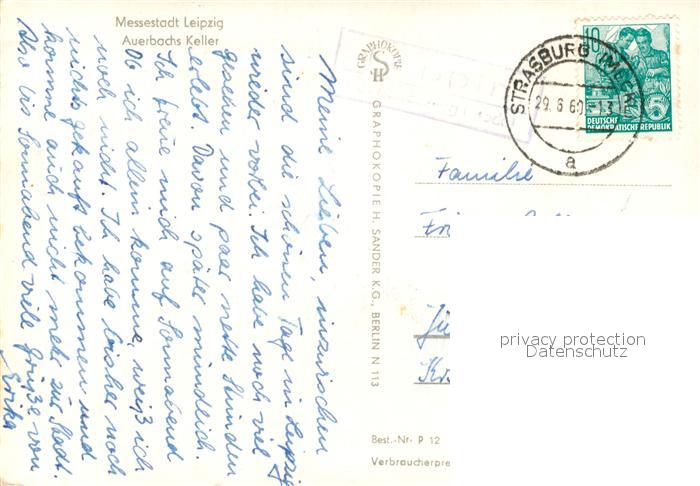 Messestadt Leipzig
Auerbachs Keller
Meine Lieben, inzwischen
sind die schönen Tage in Leipzig
wieder vorbei. Ich habe noch viel
gesehen und paar nette Stunden
erlebt. Davon später mündlich.
Ich freue mich auf Sonnabend
Ob ich allein komme, weiß ich
noch nicht. Ich habe bisher noch
nichts gekauft bekommen und
komme auch nicht mehr zur Stadt.
Also bis Sonnabend viele Grüße von
Erika
GRAPHOKOPIE
H S
GRAPHOKOPIE H. SANDER K.G., BERLIN N 113
STRASBURG
29.6.60
a
10
5
DEUTSCHE
DEMOKRATISCHE REPUBLIK
Familie
privacy protection
Datenschutz
Best.-Nr. P 12
Verbraucherpre